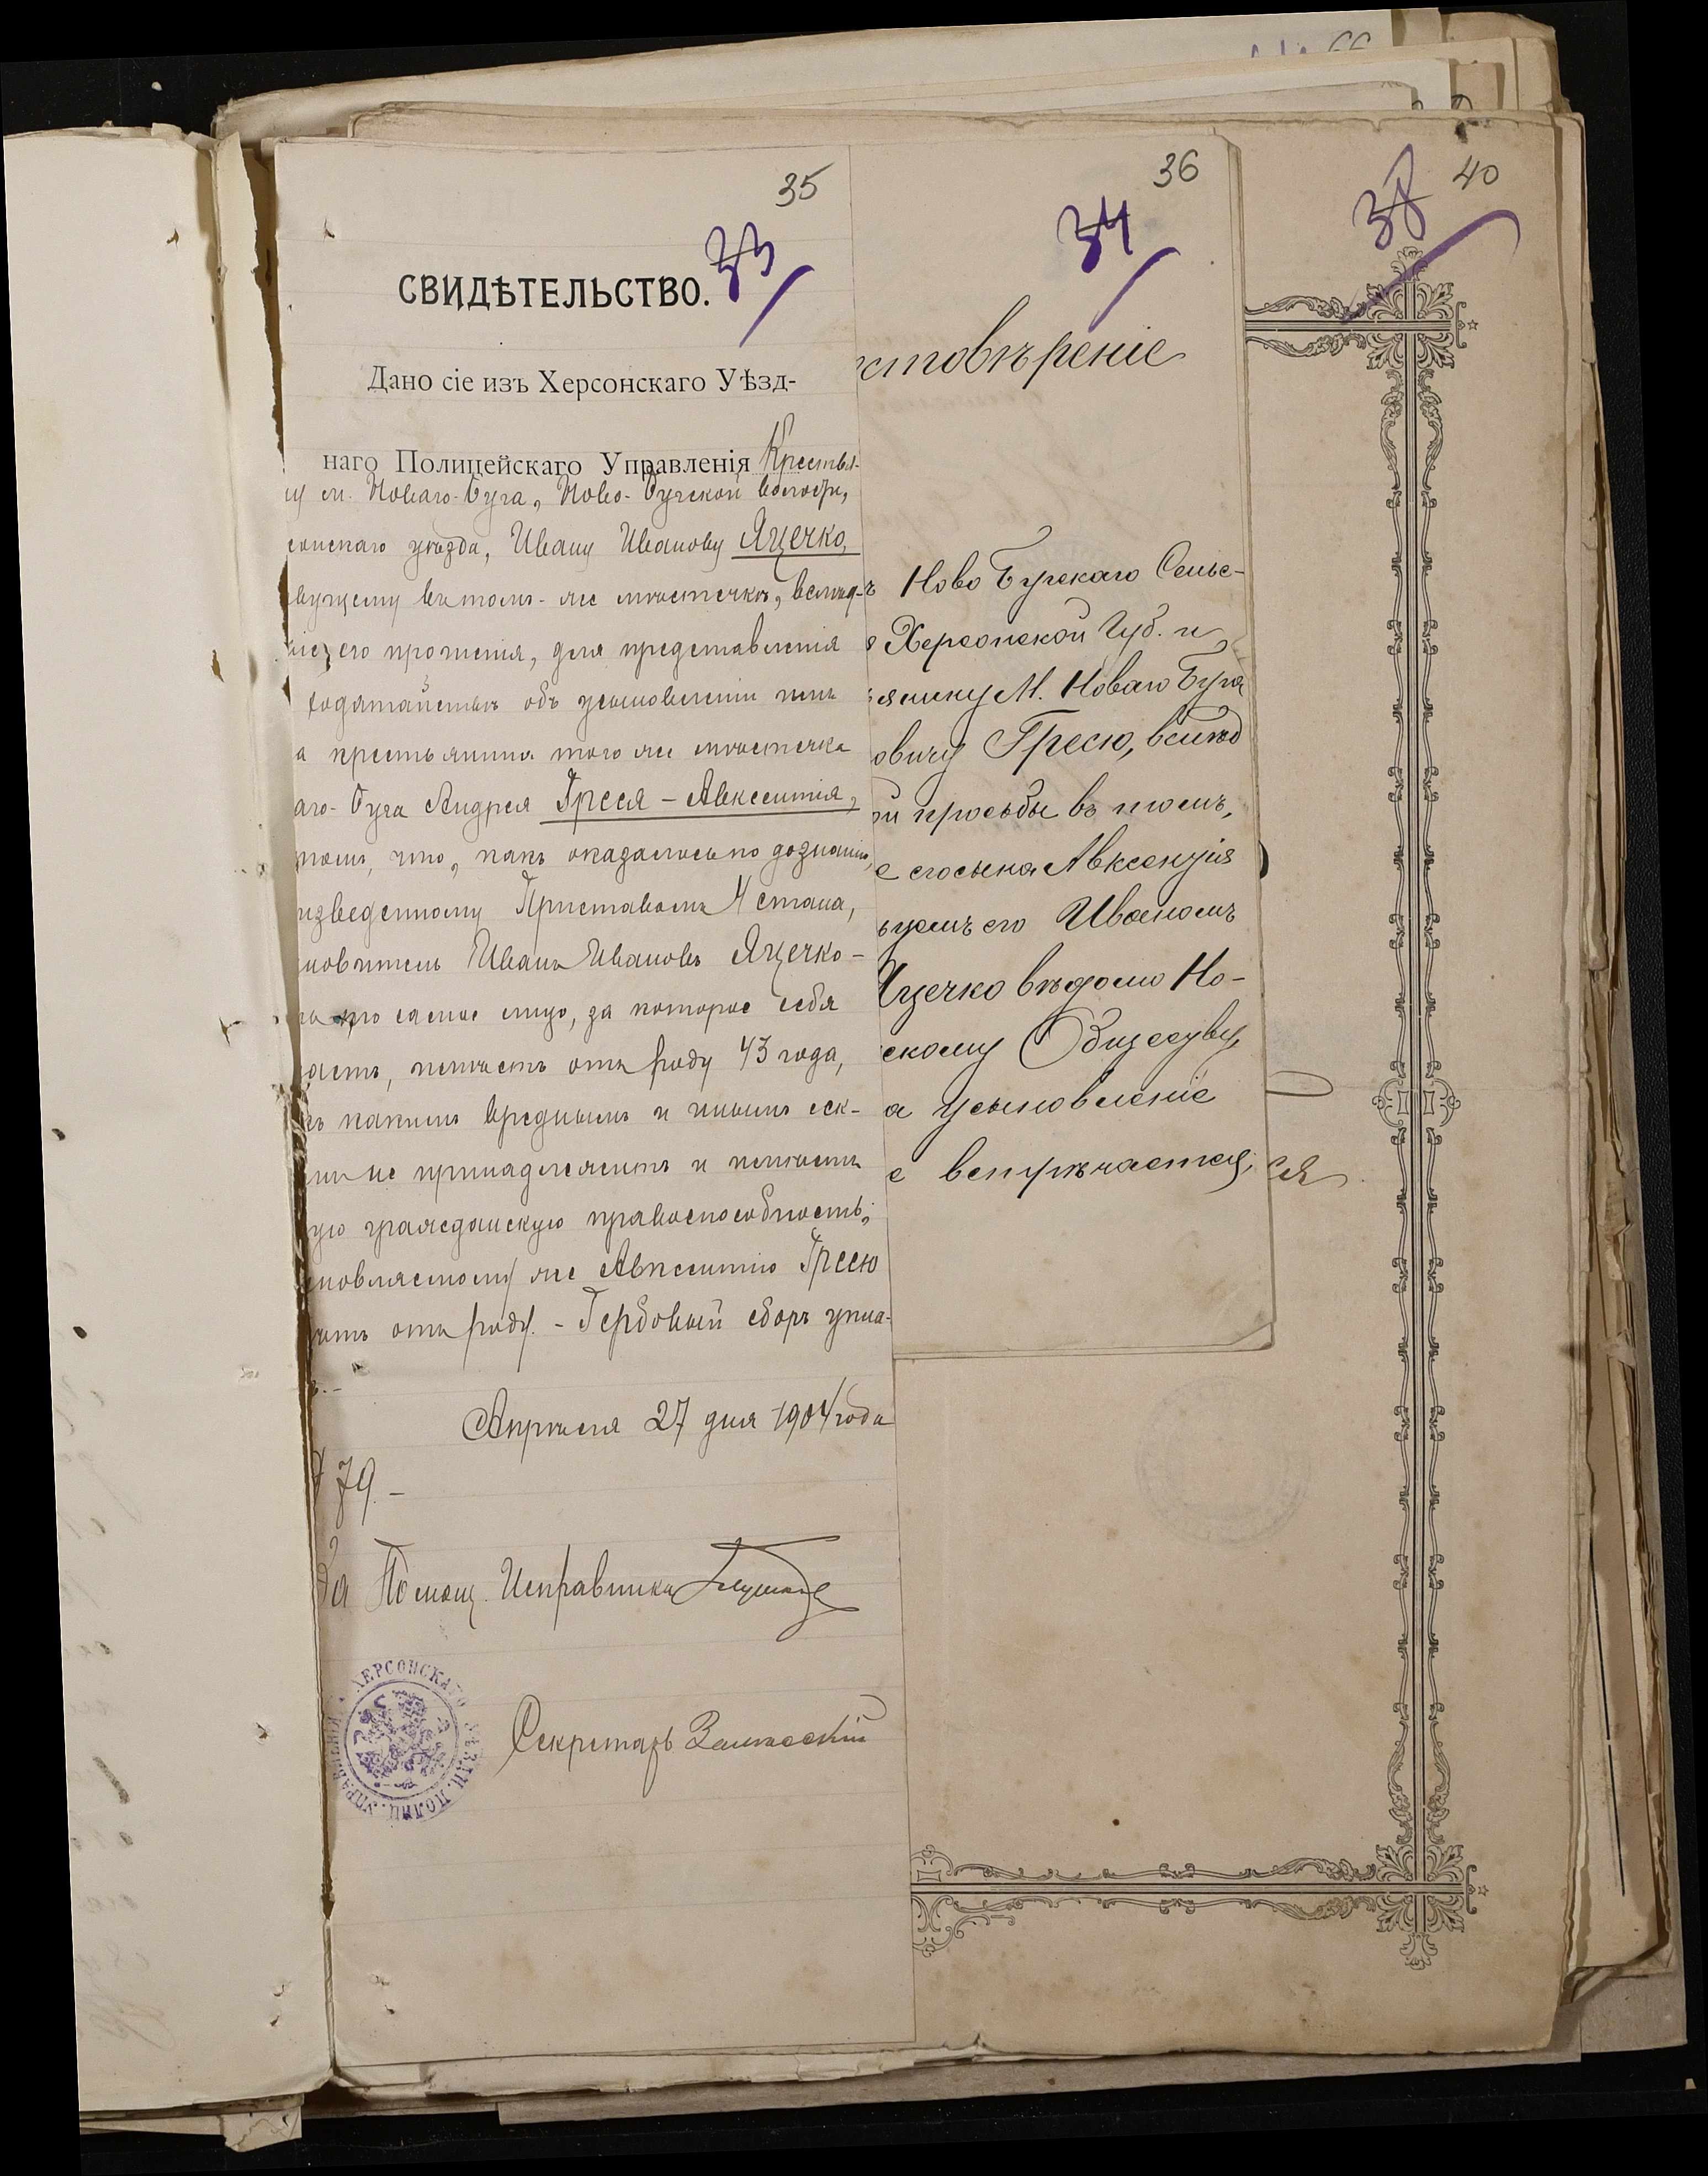 35
33
СВИДѢТЕЛЬСТВО.
Дано сіе изъ Херсонскаго Уѣзд-
наго Полицейскаго Управленія Крестья-
м. Новаго-Буга, Ново-Бугской волости,
сонскаго уѣзда, Ивану Иванову Яцечко,
вущему въ томъ-же мѣстечкѣ, вслѣд-
его прошенія, для представленія
ходатайствѣ объ усыновленіи имъ
а крестьянина того же мѣстечка
аго-Буга Андрея Гресся-Авксентія,
томъ, что, какъ оказалось по дознанію,
изведенному Приставомъ 4 стана,
новитель Иванъ Ивановъ Яцечко-
то самое лицо, за которое себя
аетъ, имѣетъ отъ роду 43 года,
къ какимъ вреднымъ и инымъ сек-
не принадлежитъ и имѣетъ
ую гражданскую правоспособность,
новляемому же Авксентію Гресю
отъ роду. - Гербовый сборъ упла-
Апрѣля 27 дня 1904 года
79.-
Помощ. Исправника
Секретарь
ХЕРСОНСКАГО УѢЗДН. ПОЛИЦ. УПРАВЛЕНІЯ
36
34
стовѣреніе
Ново Бугскаго Сельс-
Херсонской Губ. и
янину М. Новаго Буга
овичу Гресю, вслѣд
просьбы въ томъ,
е его сына Авксентія
его Иваномъ
Яцечко вѣдомо Но-
скому Обществу,
а усыновленіе
е встрѣчается,
ся
40
38